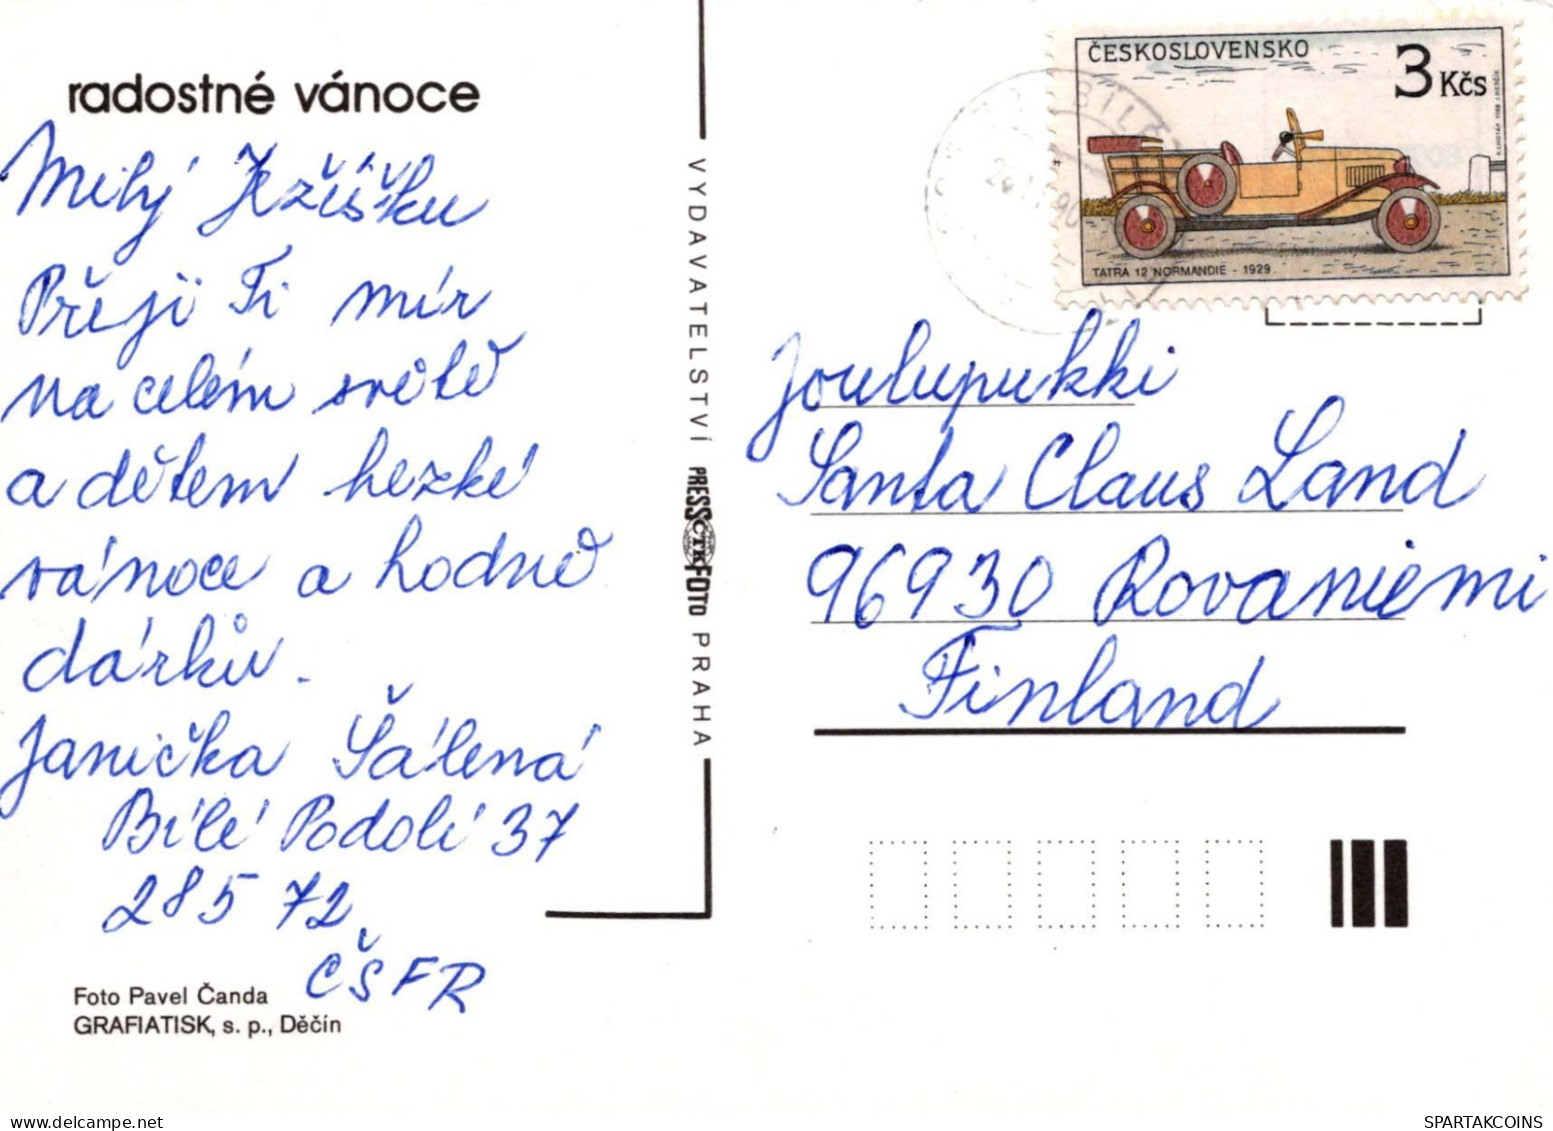 radostné vánoce
Milý Ježíšku
Přeji Ti mír
na celém světě
a dětem hezké
vánoce a hodně
dárků.
Janička Šálená
Bílé Podolí 37
285 72
ČSFR
Foto Pavel Čanda
GRAFIATISK, s. p., Děčín
VYDAVATELSTVÍ PRESSFOTO PRAHA
ČTK
ČESKOSLOVENSKO
3 Kčs
TATRA 12 NORMANDIE - 1929
Joulupukki
Santa Claus Land
96930 Rovaniemi
Finland
SPARTAKCOINS